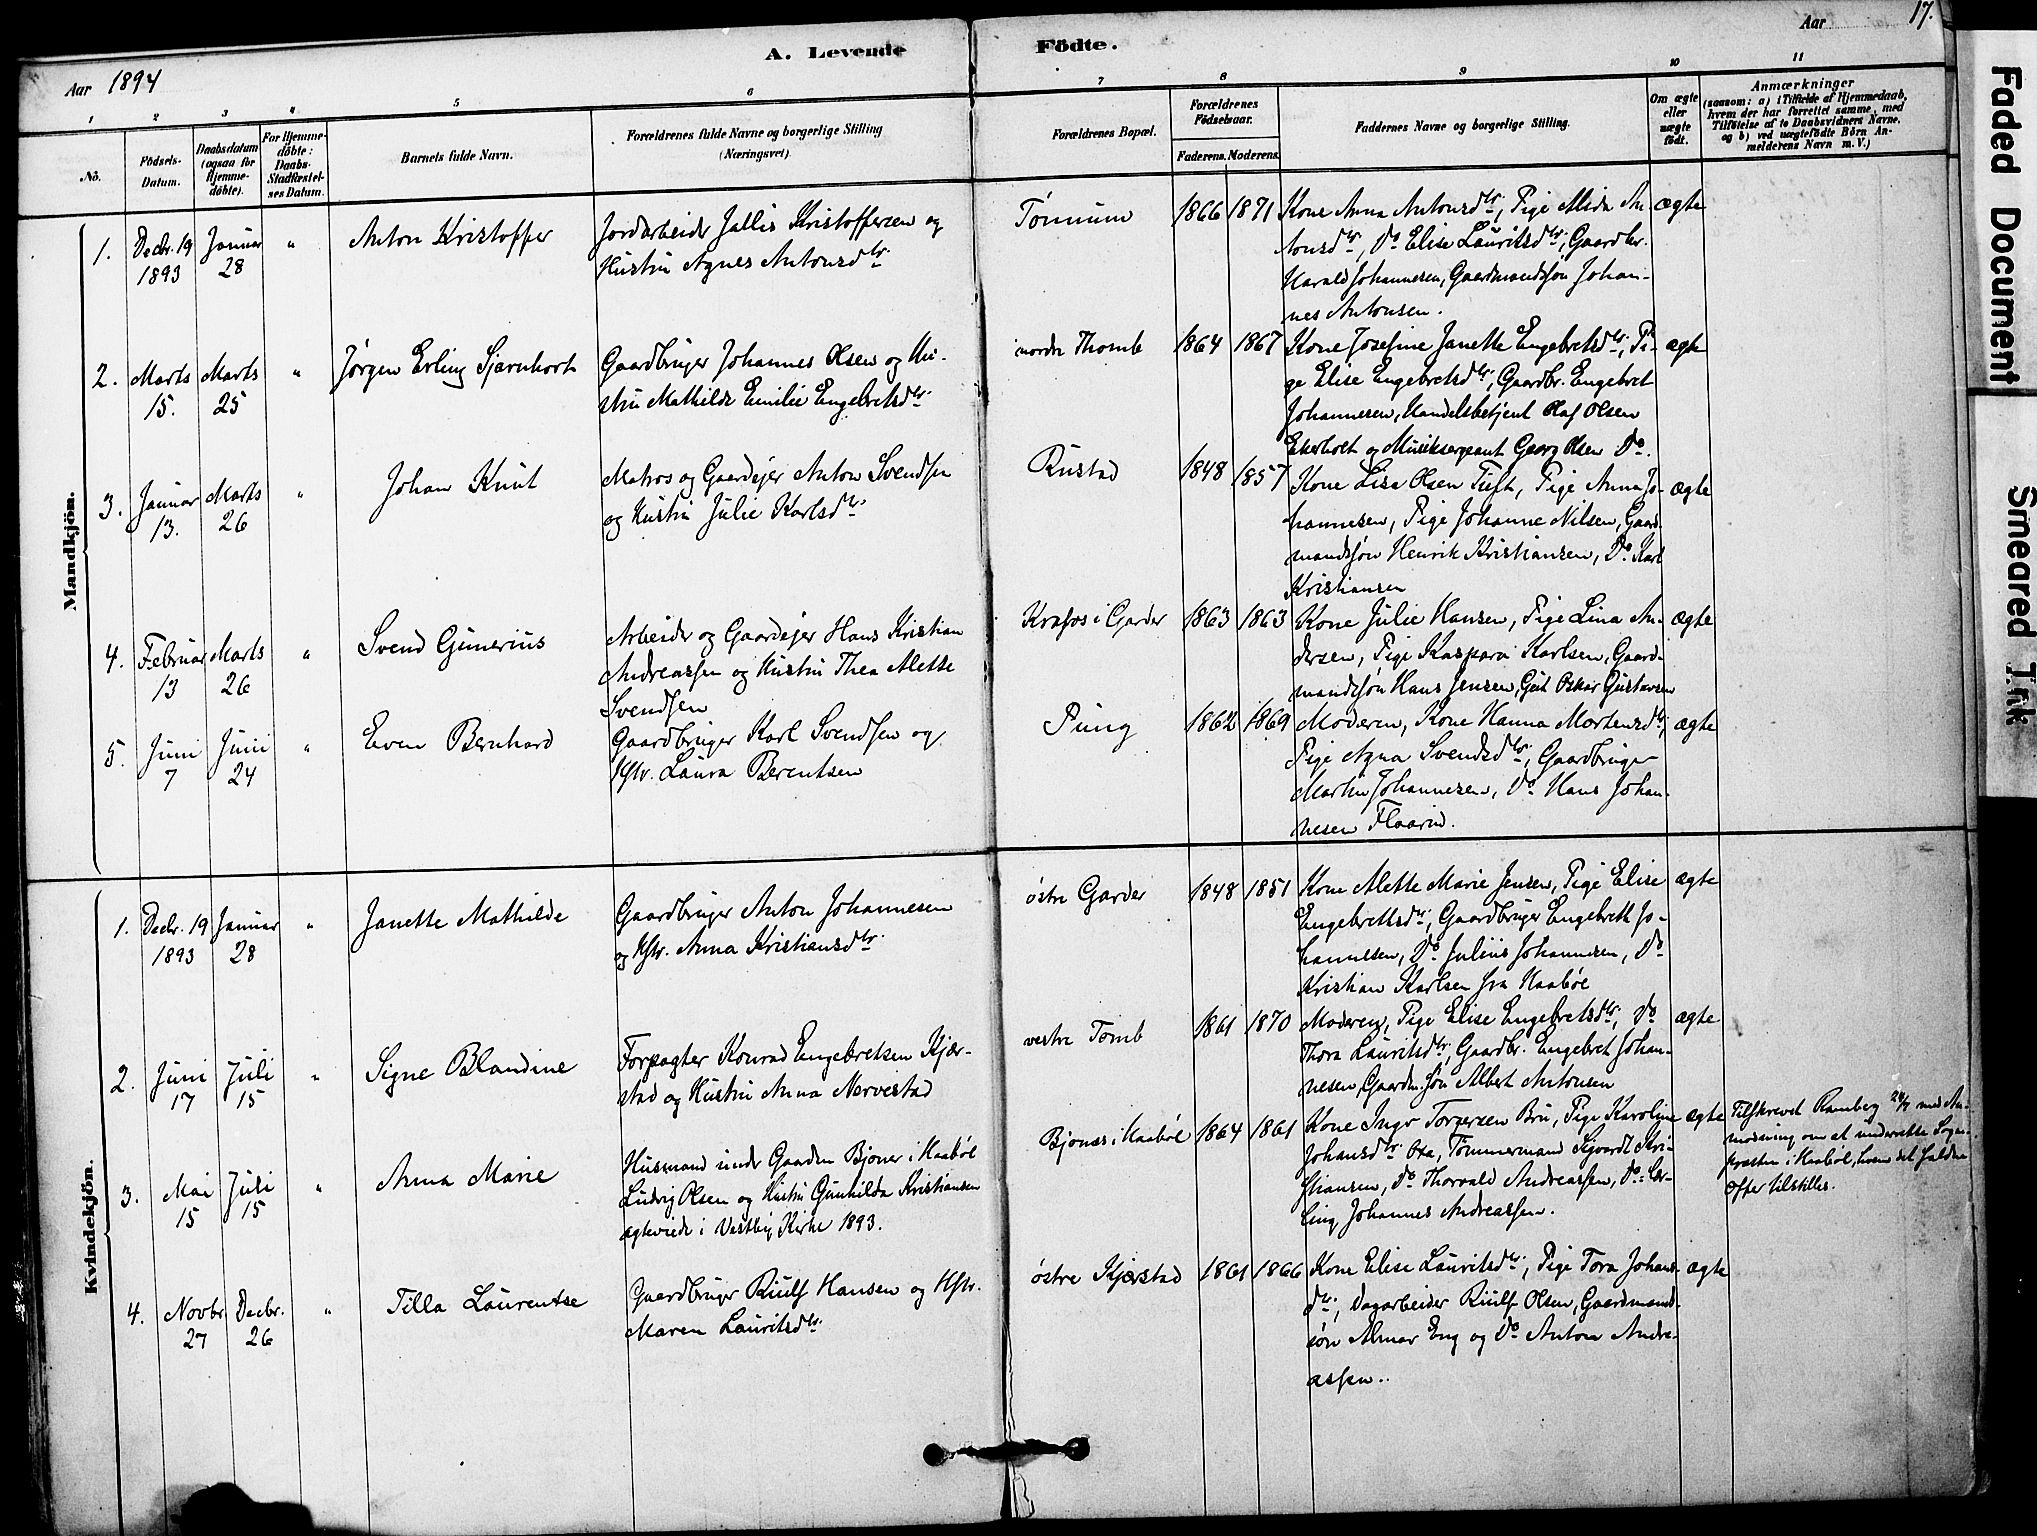 17.
A. Levende Födte.
Aar 1894
Aar
1 2 3 4 5 6 7 8 9 10 11
No.
Födsels-Datum.
Daabsdatum (ogsaa for Hjemme-döbte).
For Hjemme-döbte: Daabs-Stadfæstel-ses Datum.
Barnets fulde Navn.
Forældrenes fulde Navne og borgerlige Stilling (Næringsvei)
Forældrenes Bopæl.
Forældrenes Födselsaar.
Faderens. Moderens.
Faddernes Navne og borgerlige Stilling.
Om ægte eller uægte födt.
Anmærkninger
(saasom: a) i Tilfælde af Hjemmedaab,
hvem der har forrettet samme, med
Tilföielse af to Daabsvidners Navne,
og b) ved uægtefödte Börn An-
melderens Navn m. V.)
Mandkjön.
1. Decbr. 19 1893
Januar 28
"
Anton Kristoffer
Jordarbeider Jallis Kristoffersen og
Hustru Agnes Antonsdtr.
Tömmum
1866 1871
Kone Anna Antonsdtr., Pige Alida An-
tonsdtr., Do Elise Lauritsdtr., Gaardbr.
Harald Johannesen, Gaardmandssøn Johan-
nes Antonsen.
ægte
2. Marts 15.
Marts 25
"
Jørgen Erling Stjernhort
Gaardbruger Johannes Olsen og Hu-
stru Mathilde Emilie Engebretsdtr.
nordre Thomb
1864 1867
Kone Josefine Janette Engebretsdtr., Pi-
ge Elise Engebretsdtr., Gaardbr. Engebret
Johannesen, Handelsbetjent Olaf Olsen
Ekerholt og Musiksergeant Georg Olsen Do.
ægte
3. Januar 13.
Marts 26
"
Johan Knut
Matros og Gaardejer Anton Svendsen
og Hustru Julie Karlsdtr.
Rustad
1848 1857
Kone Lisa Olsen Tuft, Pige Anna Jo-
hannesen, Pige Johanne Nilsen, Gaard-
mandssøn Henrik Kristiansen, Do. Karl
Kristiansen
ægte
4. Februar 13
Marts 26
"
Svend Gunerius
Arbeider og Gaardejer Hans Kristian
Andreassen og Hustru Thea Alette
Svendsen
Krafos i Garder
1863 1863
Kone Julie Hansen, Pige Lina An-
dersen, Pige Kaspara Karlsen, Gaard-
mandssøn Hans Jensen, Gut Oskar Gustavsen
ægte
5. Juni 7
Juni 24
"
Even Bernhard
Gaardbruger Karl Svendsen og
Hstr. Laura Berentsen
Pung
1862 1869
Moderen, Kone Hanna Mortensdtr.,
Pige Agna Svendsdtr., Gaardbruger
Martin Johannesen, Do Hans Johan-
nesen Flaarud.
ægte
Kvindekjön.
1. Decbr. 19 1893
Januar 28
"
Janette Mathilde
Gaardbruger Anton Johannesen
og Hstr. Anna Kristiansdtr.
østre Garder
1848 1851
Kone Alette Marie Jensen, Pige Elise
Engebretsdtr., Gaardbruger Engebrett Jo-
hannesen, Do Julius Johannesen, Do
Kristian Karlsen fra Haabøl
ægte
2. Juni 17
Juli 15
"
Signe Blandine
Forpagter Konrad Engebretsen Kjær-
stad og Hustru Anna Nervestad
vestre Tomb
1861 1870
Moderen, Pige Elise Engebretsdtr., Do
Thora Lauritsdtr., Gaardbr. Engebret Johan-
nesen, Gaardm.søn Albert Antonsen
ægte
3. Mai 15
Juli 15
"
Anna Marie
Husmand under Gaarden Bjoner i Haabøl
Ludvig Olsen og Hustru Gunhilda Kristiansen
ægteviede i Vestby Kirke 1893.
Bjoner i Haabøl
1864 1861
Kone Inga Torgersen Bru, Pige Karoline
Johansdtr. Oxa, Tømmermand Sjvardt Kri-
stiansen, Do Thorvald Andreassen, Do: Lær-
ling Johannes Andreassen.
ægte
Tilskrevet Ramberg 24/7 med An-
modning om at underrette Sogne-
præsten i Haabøl, hvem det
Offer tilstilles.
4. Novbr. 27
Decbr. 26
"
Tilla Laurentse
Gaardbruger Riulf Hansen og Hstr.
Maren Lauritsdtr.
østre Kjærstad
1861 1866
Kone Elise Lauritsdtr., Pige Tora Johans-
dtr., Dagarbeider Riulf Olsen, Gaardmand-
søn Almar Eng og Do Anton Andre-
assen.
ægte
Faded Document
Smeared Ink